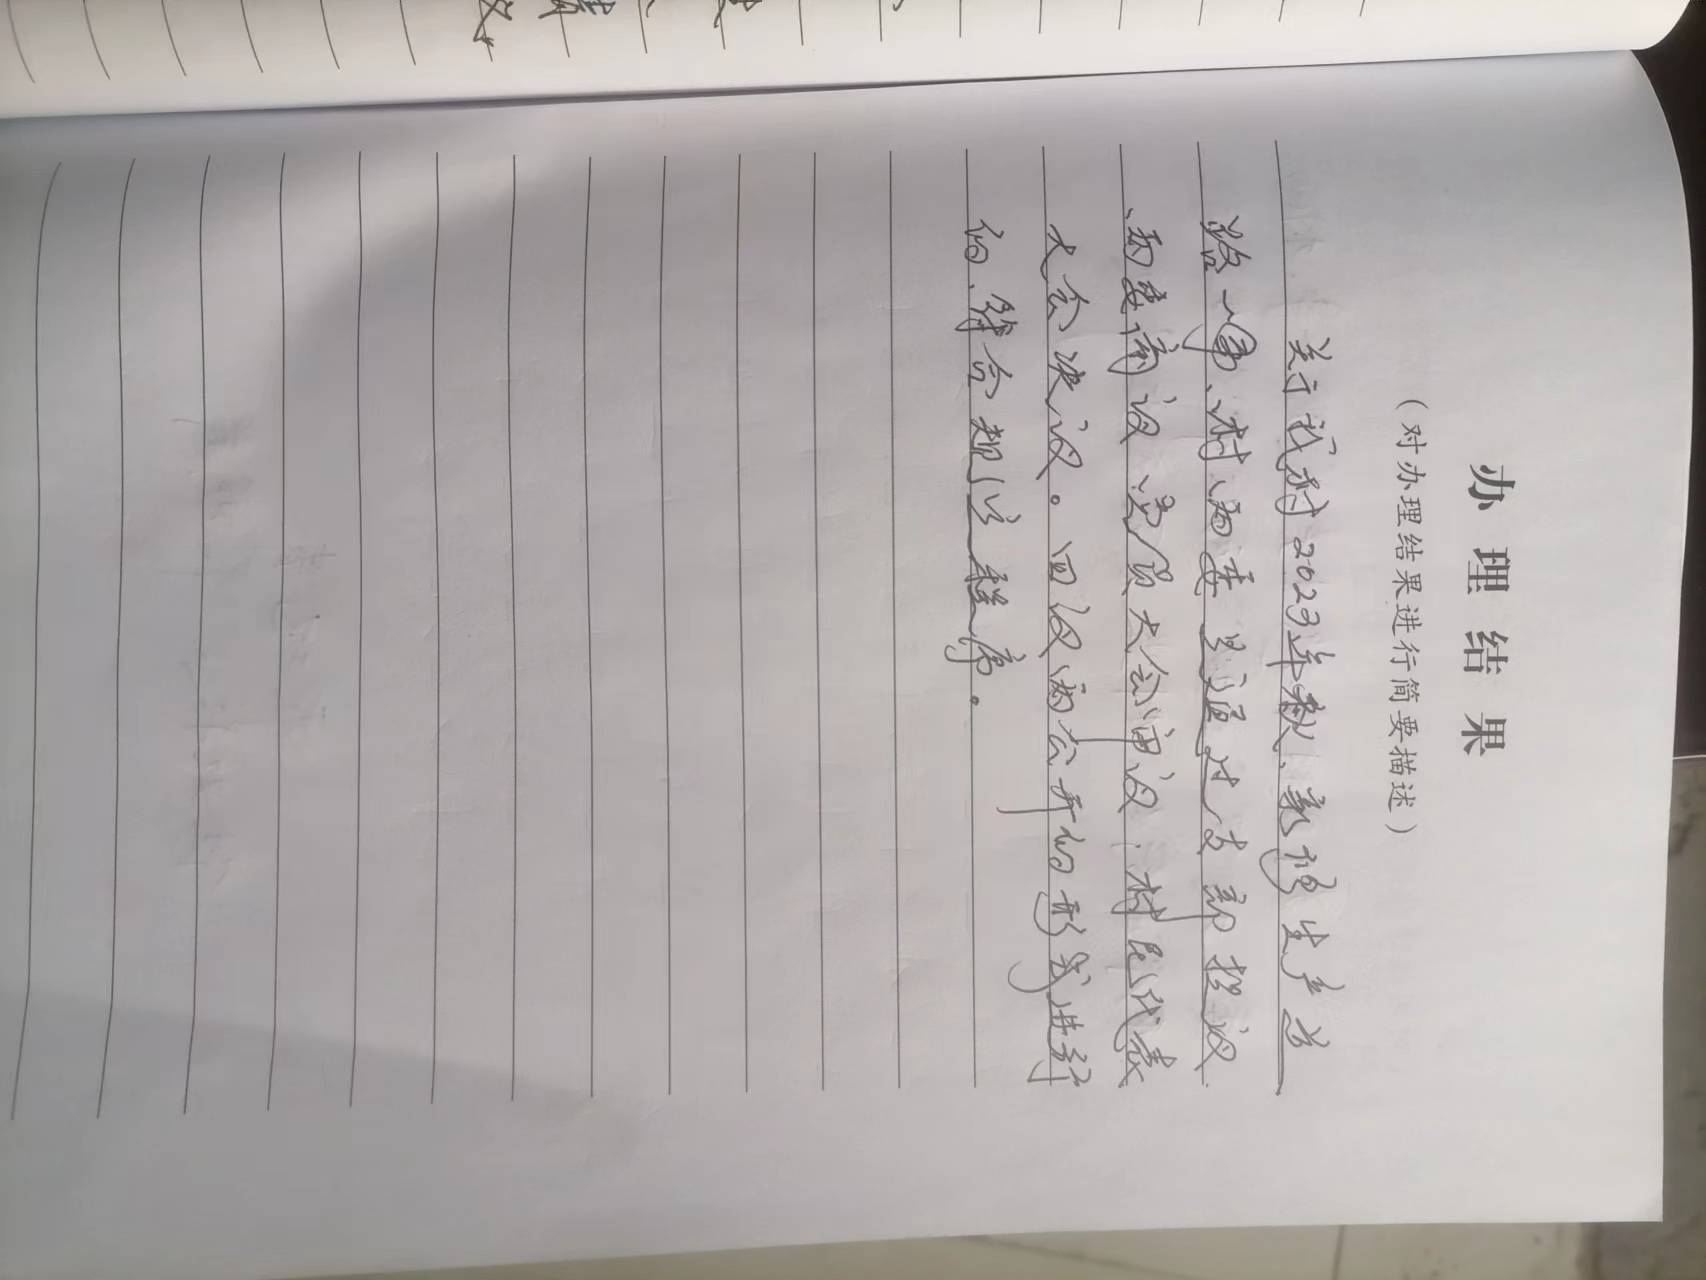 办理结果
（对办理结果进行简要描述）
关于我村2023年秋、新修生产道
路一事、村两委是通过支部提议
、两委商议、党员大会审议、村民代表
大会决议。四议两公开的形式进行
的、符合规公程序。